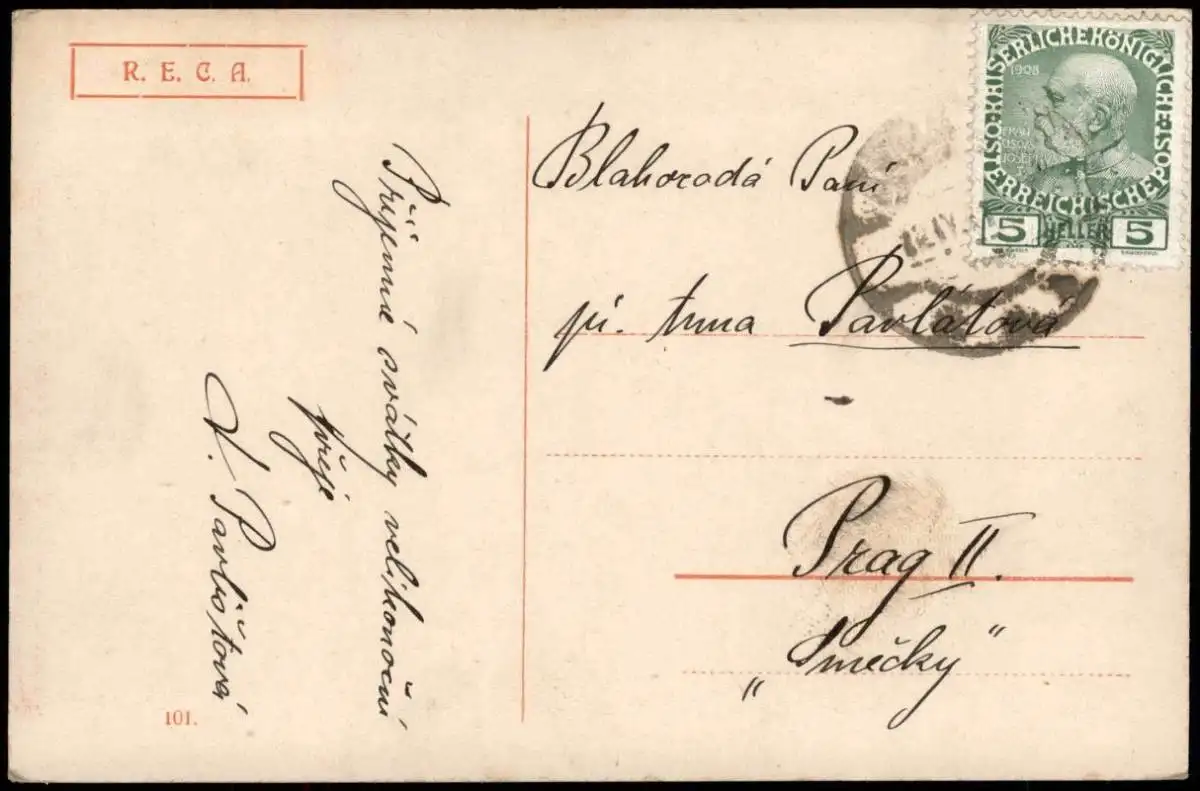 R. E. C. A.
Příjemné svátky velikonoční
přeje
Pavlištová
101.
KAISERLICHE KÖNIGLICHE
ÖSTERREICHISCHE POST
1908
FRAN
CISCVS
JOSEF I
5 HELLER 5
IV
Blahorodá Paní
pí. Pavlátová
Prag II.
„Smečky"